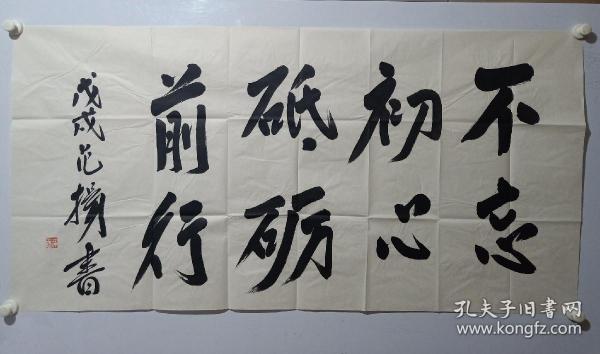 不忘
初心
砥砺
前行
戊戌范扬书
孔夫子旧書网
www.kongfz.com